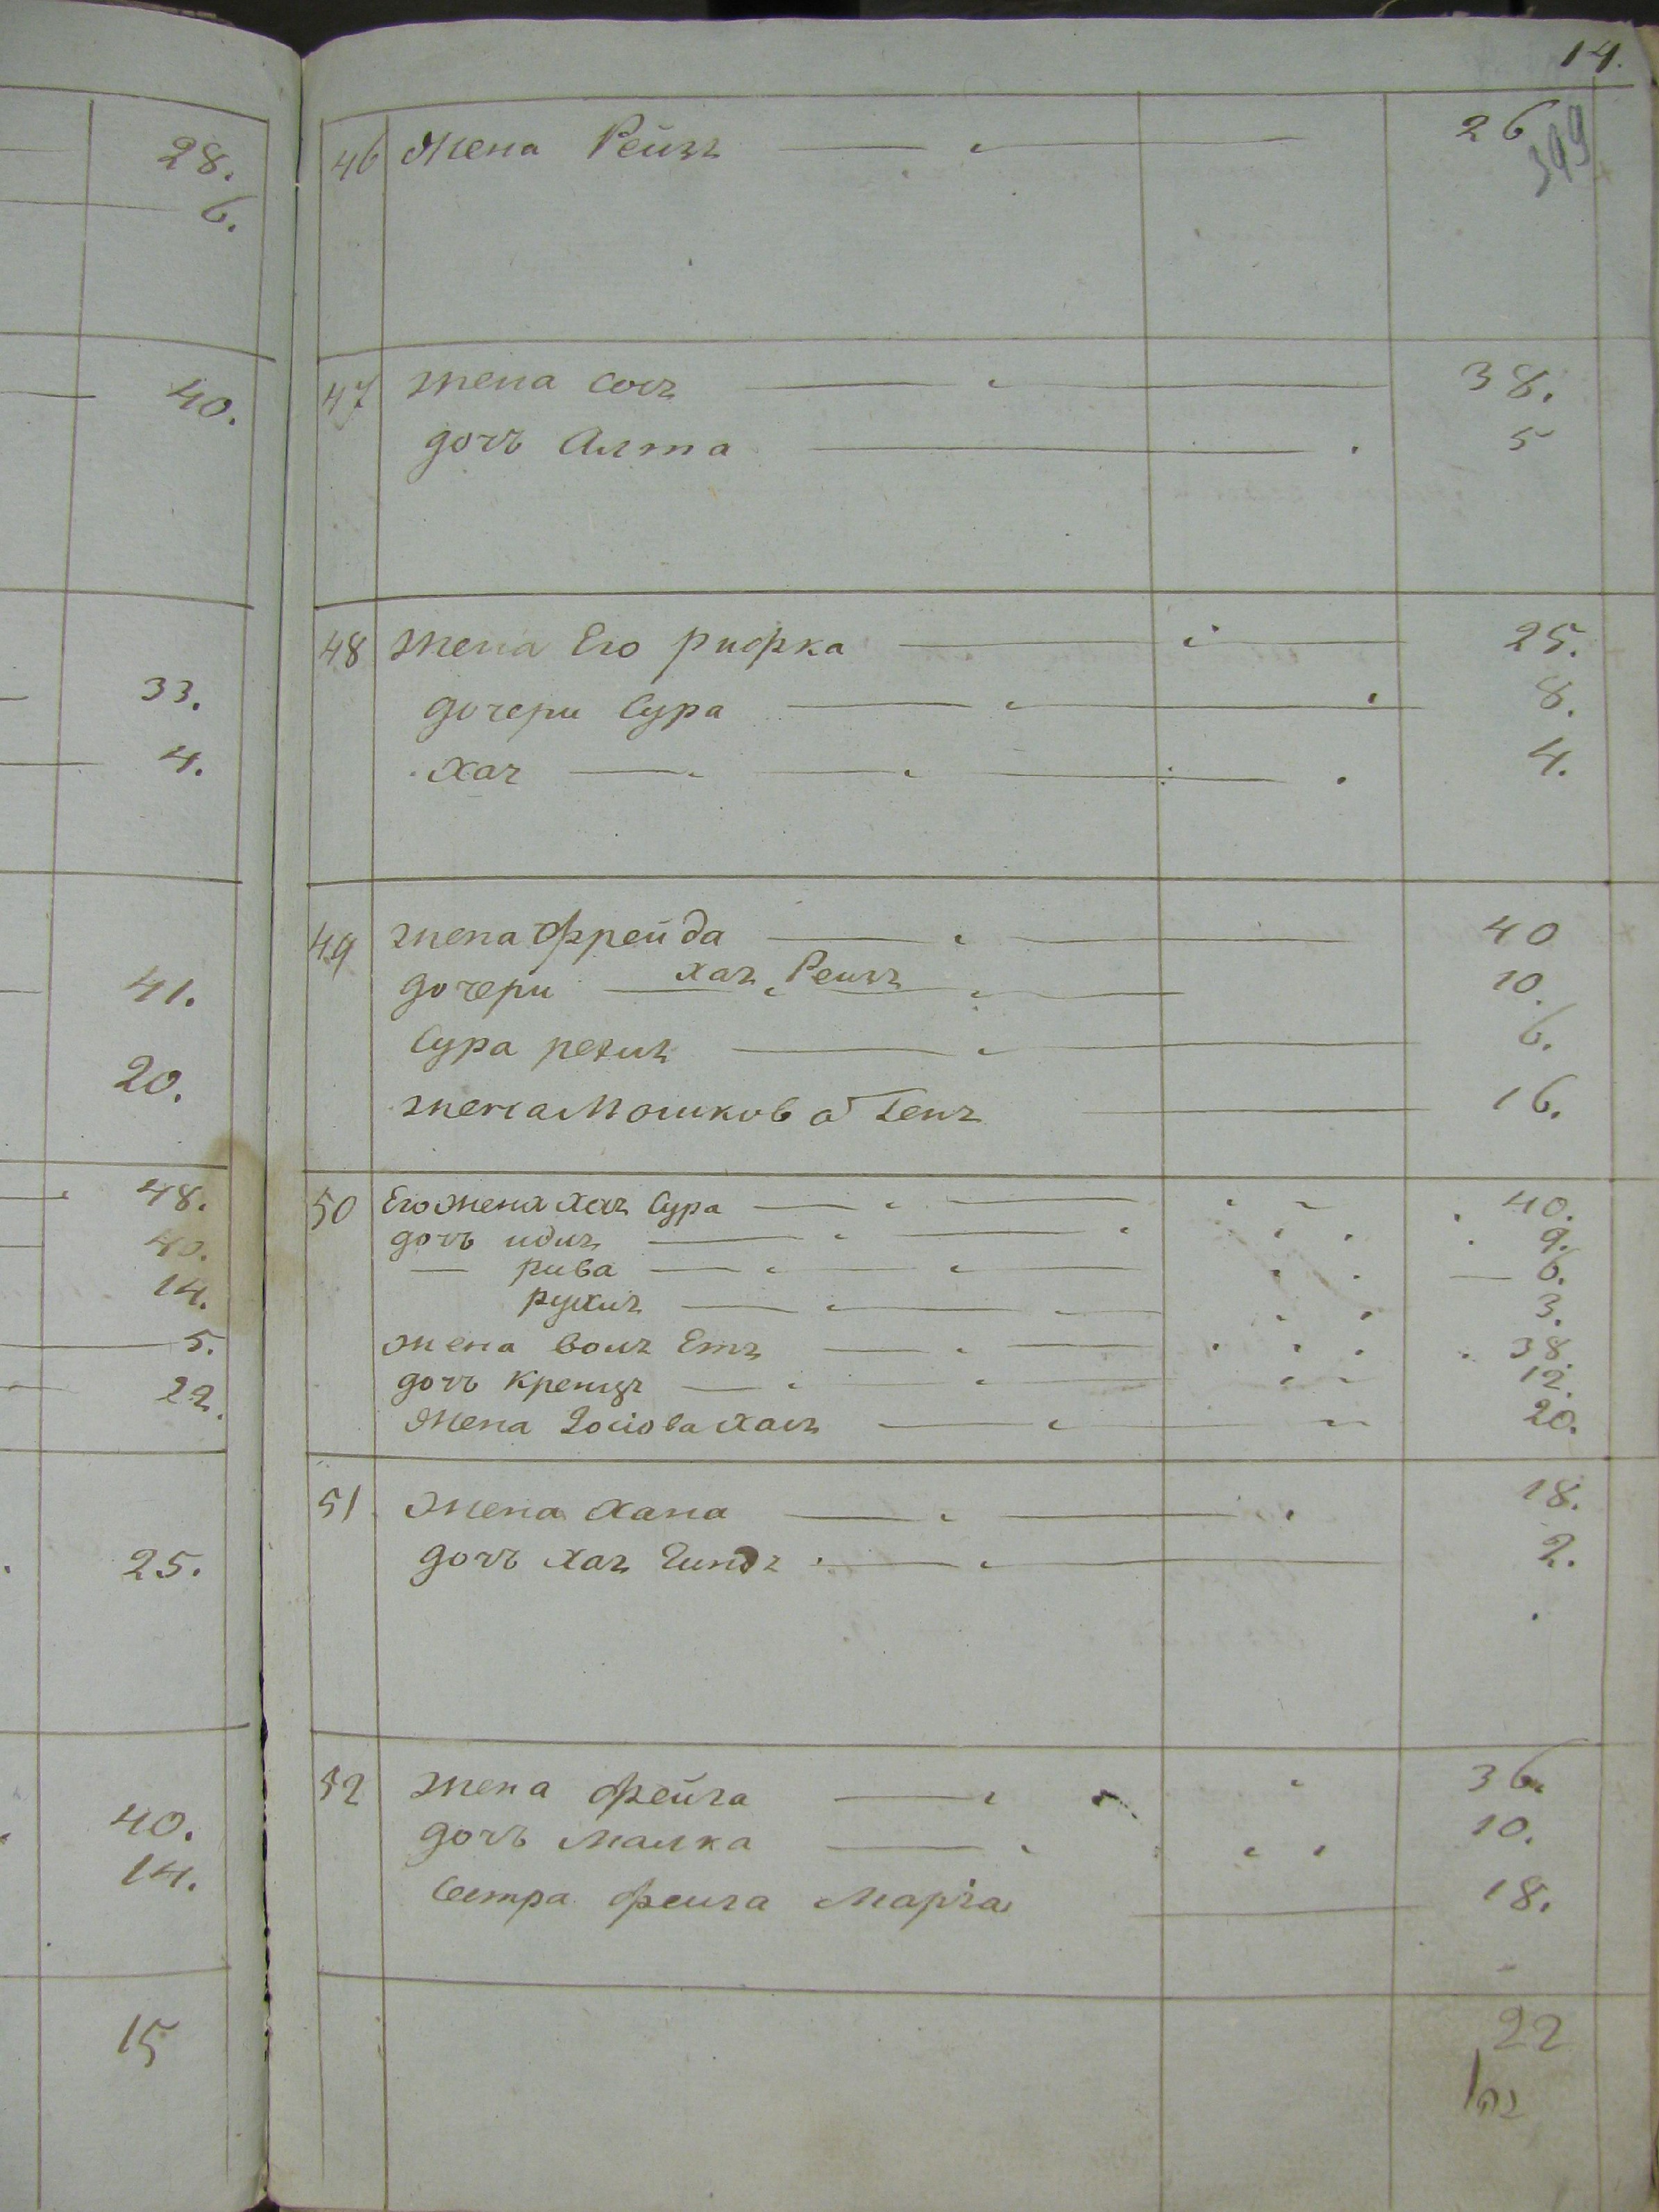 28.
6.
40.
33.
4.
41.
20.
48.
40.
14.
5.
22.
25.
40.
14.
15
14.
46 Жена Рейзъ 26
349
47 жена Сосъ 38.
дочь Алта 5
48 жена Его рифка 25.
дочери Сура 8.
Хаъ 4.
49 жена Фрейда 40
дочери Хаъ Реизъ 10.
Сура 6.
жена Мошкова Генъ 16.
50 Его жена Хаъ Сура 40.
дочь идиъ 9.
— рива — 6.
рухлъ 3.
жена Етъ 38.
дочь Креищъ 12.
Жена 20.
51 Жена Хана 18.
дочь Хаъ Гиндъ 2.
52 жена Фейга 36.
дочь Малка 10.
Сестра Фейга 18.
22